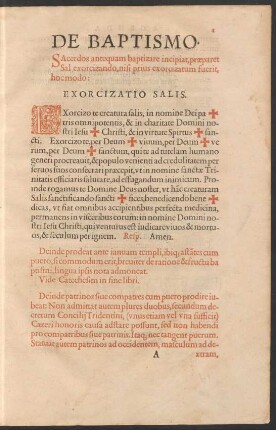 DE BAPTISMO.
SAcerdos antequam baptizare incipiat, præparet
Sal exorcizando, nisi prius exorcizatum fuerit,
hoc modo:
EXORCIZATIO SALIS.
EXorcizo te creatura salis, in nomine Dei pa✠
tris omnipotentis, & in charitate Domini no
stri Iesu ✠ Christi, & in virtute Spiritus ✠ san
cti. Exorcizo te, per Deum ✠ viuum, per Deum ✠ ve
rum, per Deum ✠ sanctum, qui te ad tutelam humani
generis procreauit, & populo venienti ad credulitatem per
seruos suos consecrari præcepit, vt in nomine sanctæ Tri
nitatis efficiaris salutare, ad effugandum inimicum. Pro
inde rogamus te Domine Deus noster, vt hãc creaturam
Salis sanctificando sancti ✠ fices, benedicendo bene ✠
dicas, vt fiat omnibus accipientibus perfecta medicina,
permanens in visceribus eorum in nomine Domini no
stri Iesu Christi, qui venturus est iudicare viuos & mortu
os, & seculum per ignem. Resp. Amen.
Deinde prodeat ante ianuam templi, ibiq; astãtes cum
puero, si commodum erit, breuiter de ratione & fructu ba
ptismi, lingua ipsis nota admoneat.
Vide Catechesim in fine libri.
Deinde patrinos siue compatres cum puero prodire iu
beat: Non admittat autem plures duobus, secundum de
cretum Concilij Tridentini, (vnus etiam vel vna sufficit)
Cæteri honoris causa adstare possunt, sed non habendi
pro compatribus siue patrinis. Itaq; nec tangent puerum.
Statuat autem patrinos ad occidentem, masculum ad de-
A xtram,